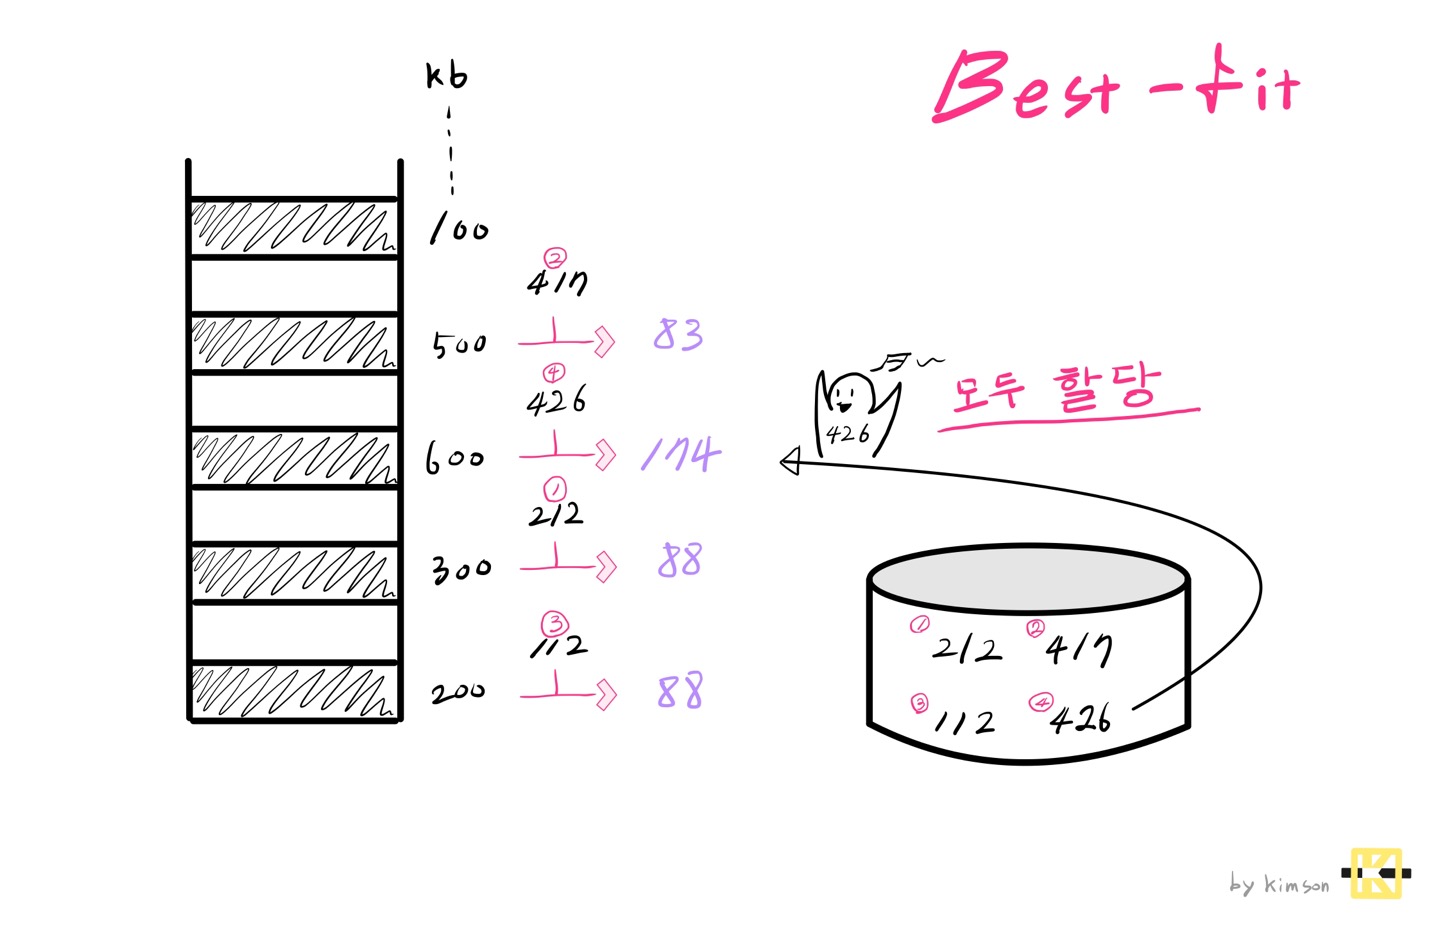 Best-fit
kb
100
②
417
500 83
④
426
600 174
①
212
300 88
③
112
200 88
426
모두 할당
① 212 ② 417
③ 112 ④ 426
by kimson
K